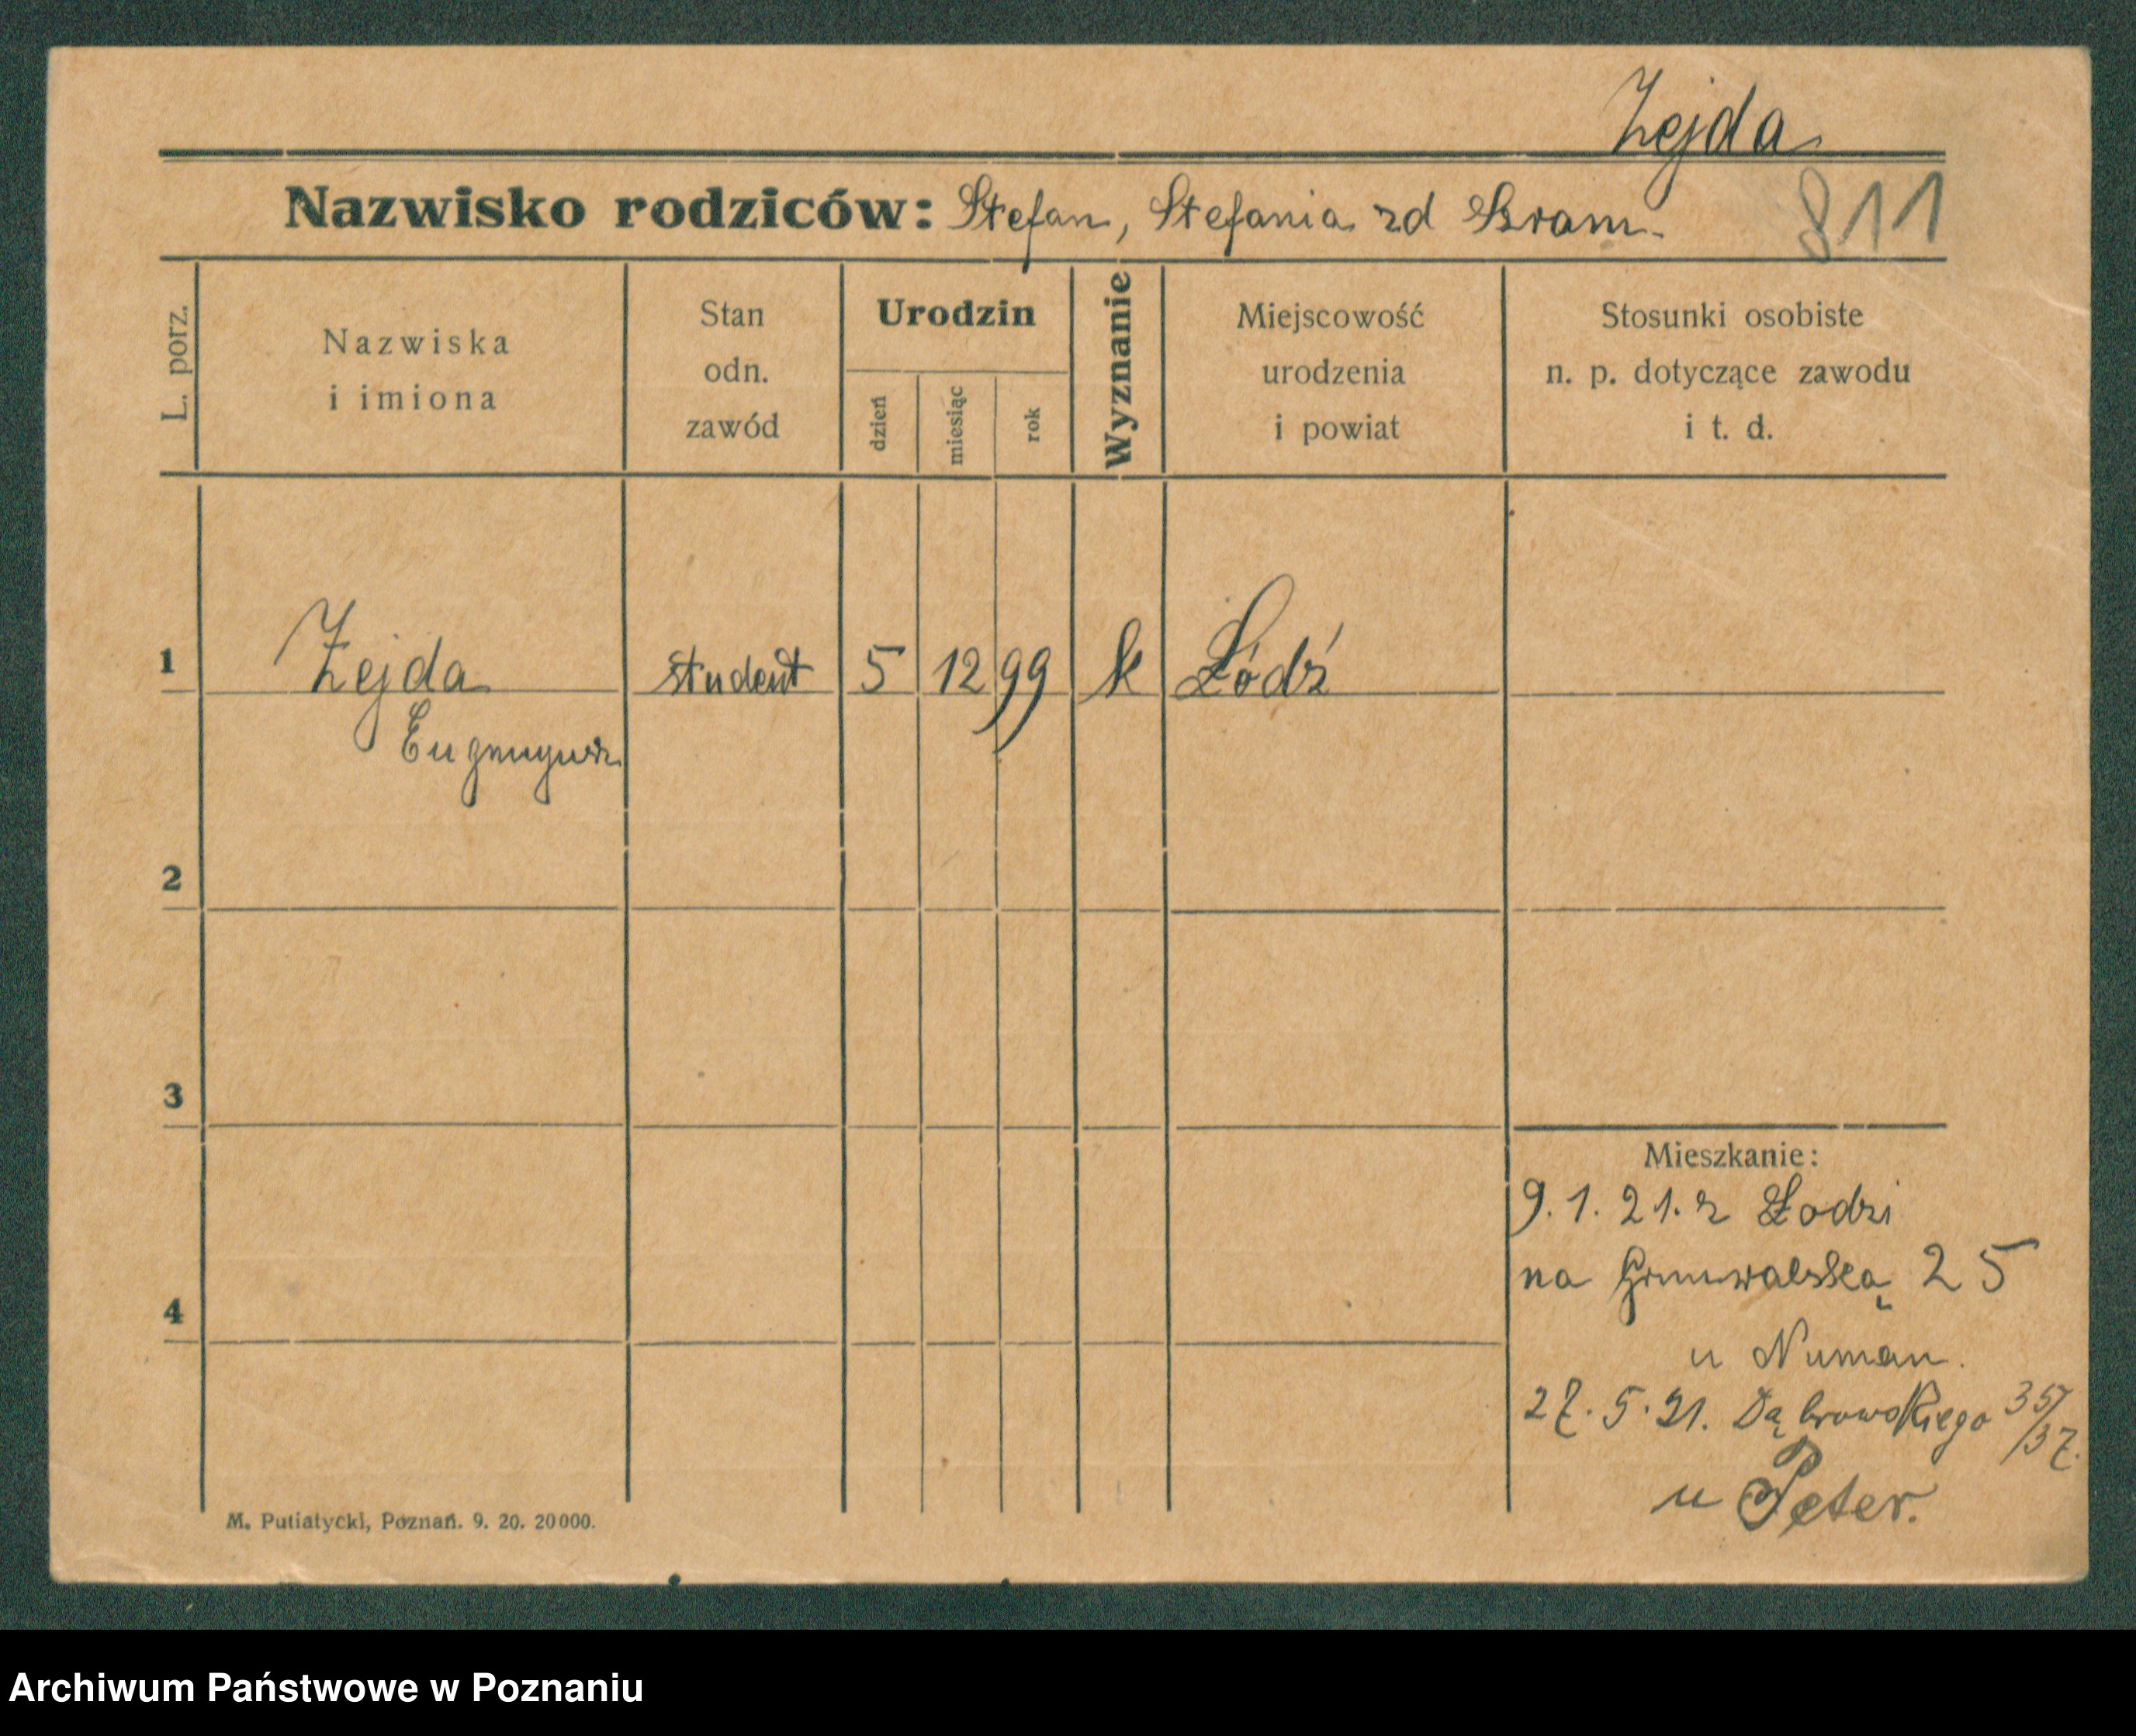 Zejda
Nazwisko rodziców: Stefan, Stefania zd Szram.
811
L. porz.
Nazwiska
i imiona
Stan
odn.
zawód
Urodzin
dzień
miesiąc
rok
Wyznanie
Miejscowość
urodzenia
i powiat
Stosunki osobiste
n. p. dotyczące zawodu
i t. d.
1 Zejda student 5 12 99 k Łódź
Eugenyusz
2
3
4
Mieszkanie:
9. 1. 21. z Łodzi
na Grunwalską 25
u Numan.
27. 5. 21. Dąbrowskiego 35/37.
u Peter.
M. Putiatycki, Poznań. 9. 20. 20000.
Archiwum Państwowe w Poznaniu